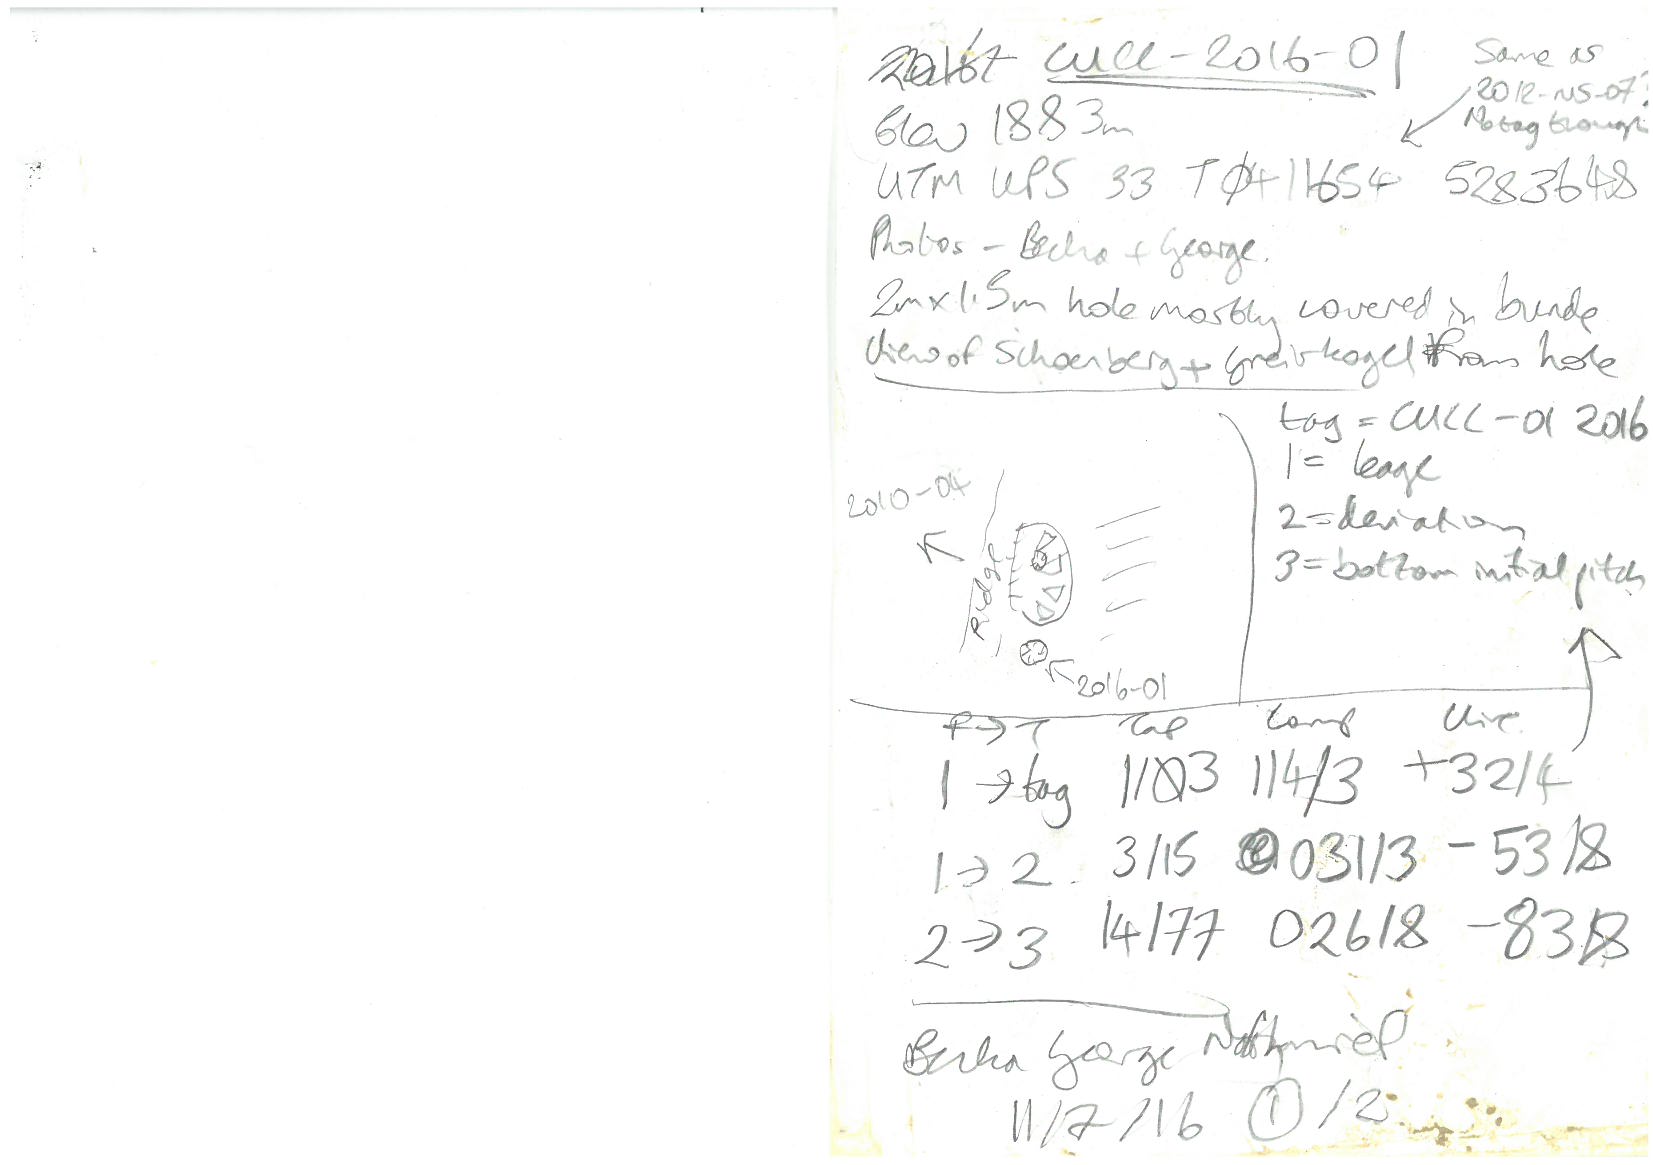 CUCC-2016-01
Same as
2012-NS-07?
No tag though
Elev 1883m
UTM UPS 33 T 0411654 5283648
Photos - Becka + George.
2m x 1.5m hole mostly covered in bunde
View of Schoenberg + Greivkogel from hole
tag = CUCC-01 2016
1 = leage
2 = deviation
3 = bottom initial pitch
2010-04
Ridge
2016-01
F→T Tap Comp Clin
1→tag 1/03 114/3 +32/4
1→2 3/15 031/3 -53/8
2→3 14/77 026/8 -83/8
Becka George Nathaniel
11/7/16 1/2